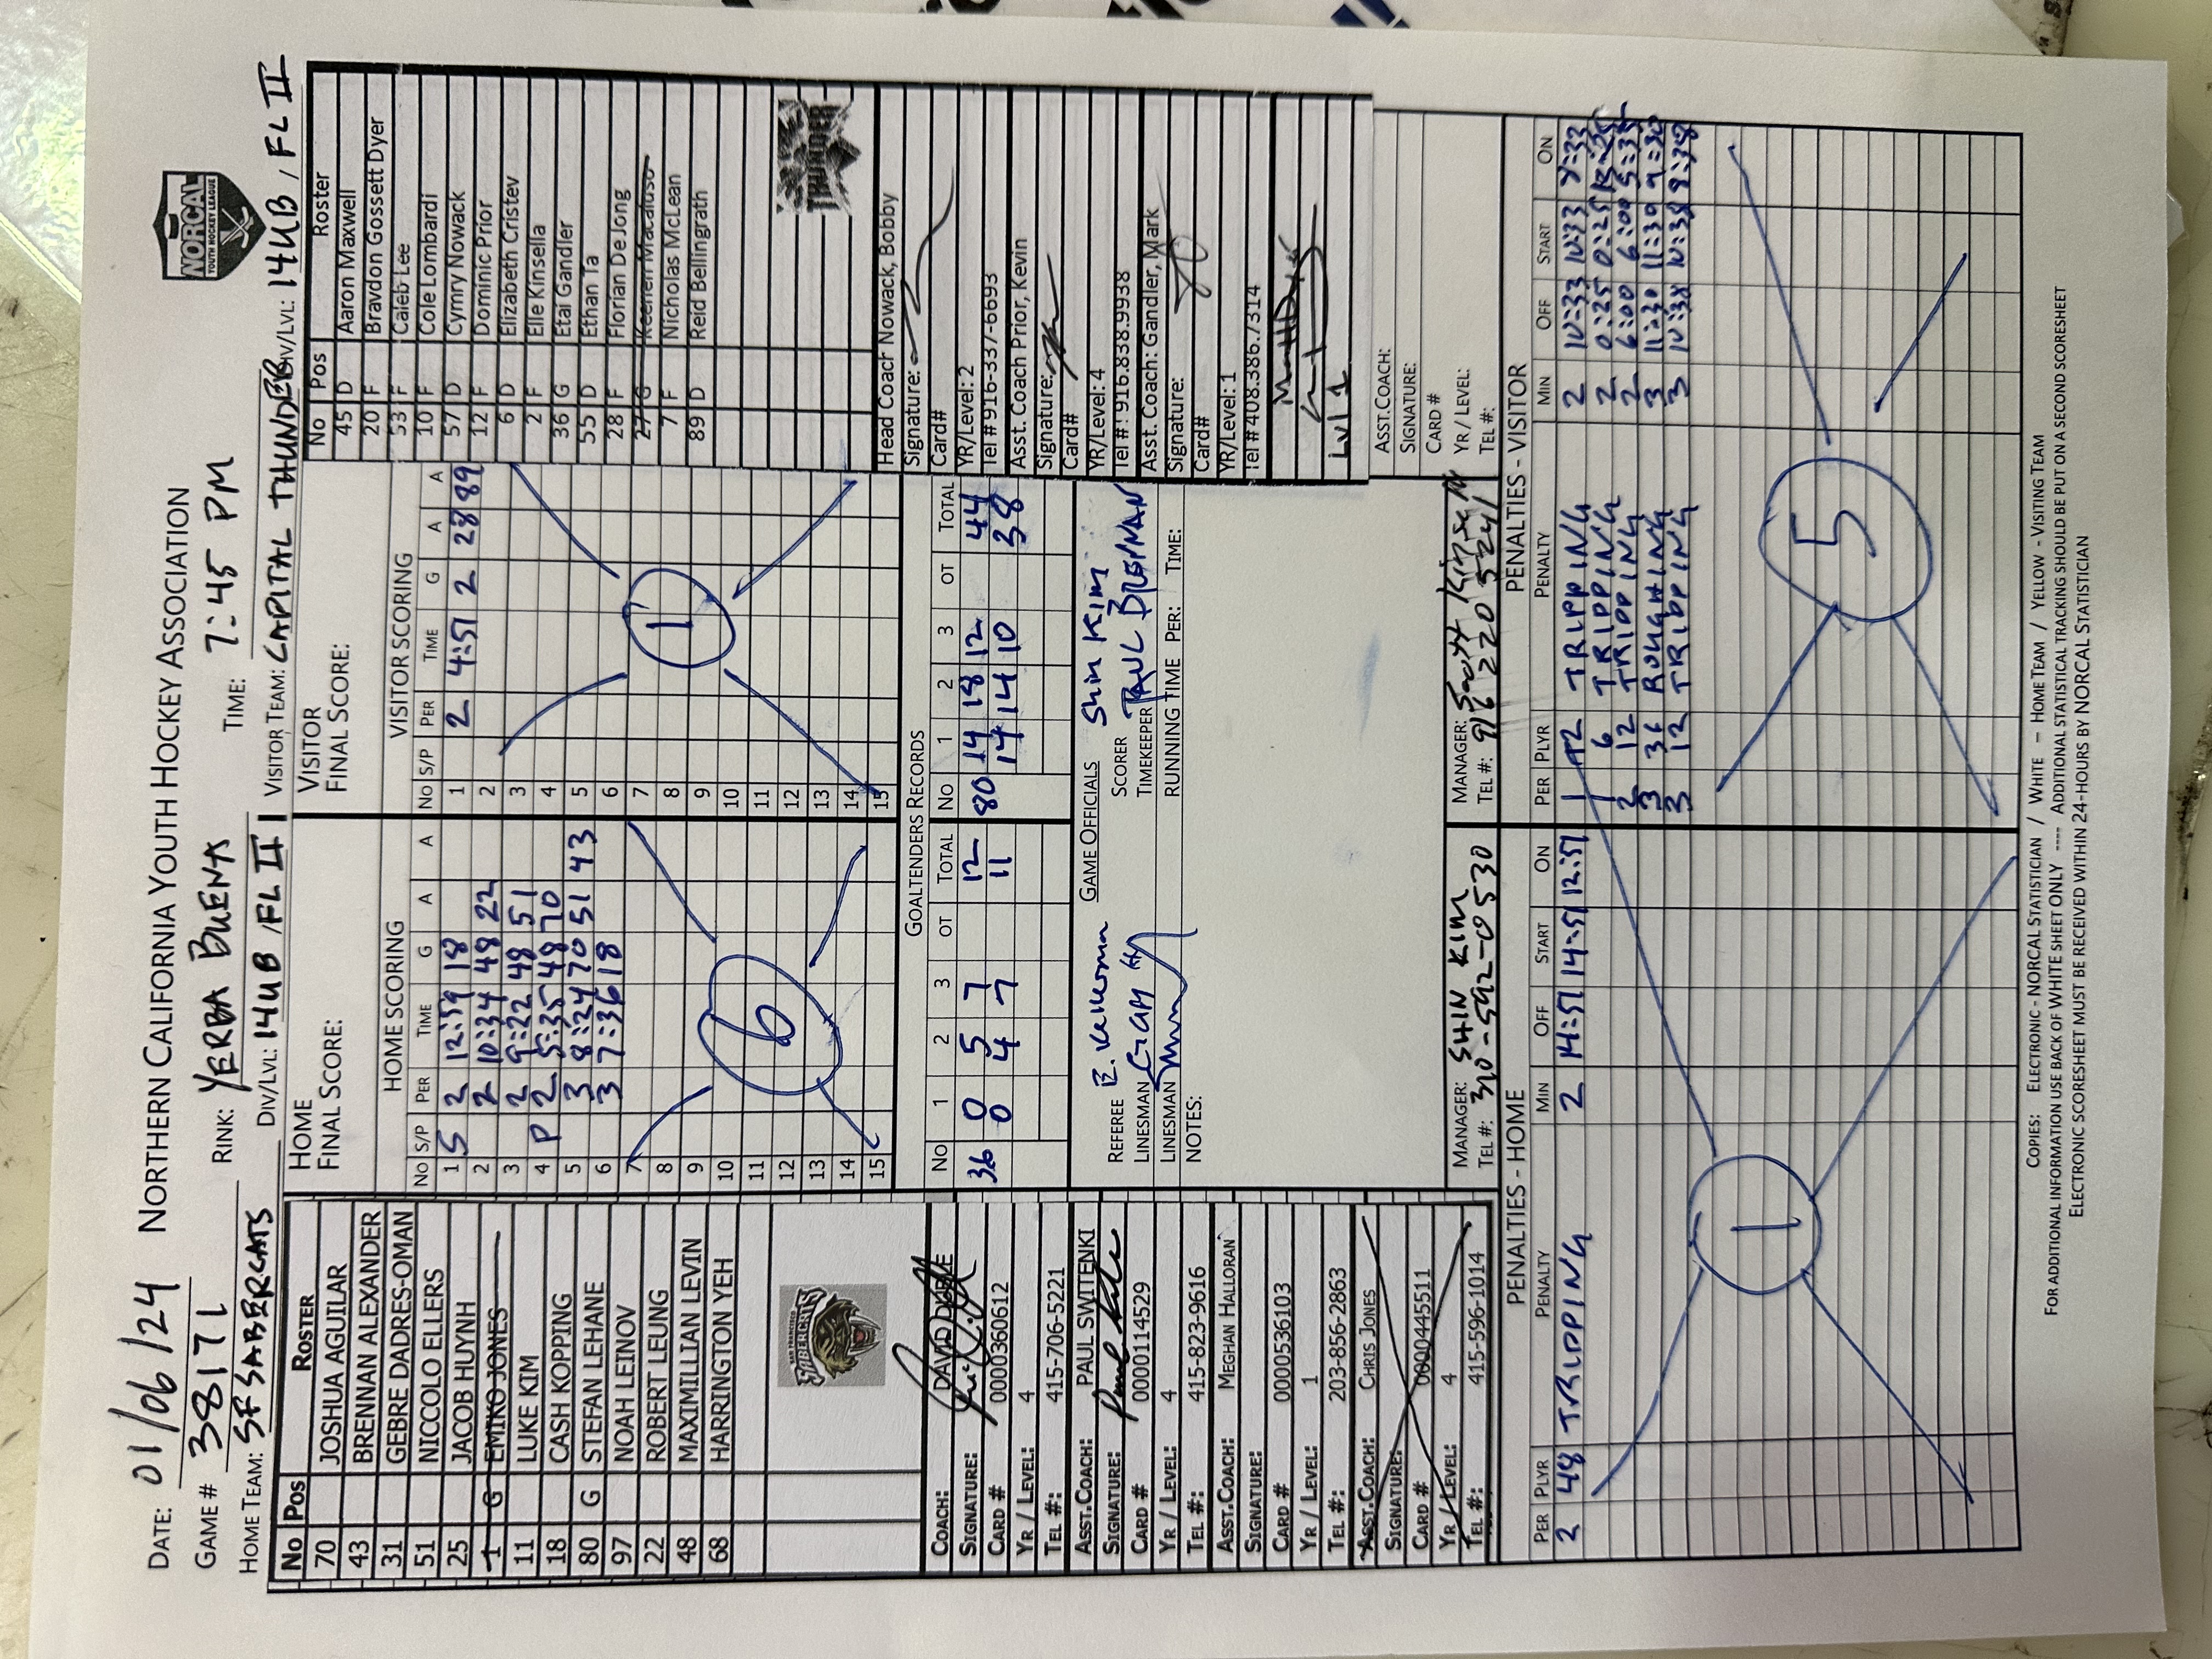 DATE: 01/06/24 NORTHERN CALIFORNIA YOUTH HOCKEY ASSOCIATION
NORCAL
YOUTH HOCKEY LEAGUE
GAME # 38171 RINK: YERBA BUENA TIME: 7:45 PM
HOME TEAM: SF SABERCATS DIV/LVL: 14UB / FL II VISITOR TEAM: CAPITAL THUNDER DIV/LVL: 14UB, FL II
No Pos Roster
70 JOSHUA AGUILAR
43 BRENNAN ALEXANDER
31 GEBRE DADRES-OMAN
51 NICCOLO ELLERS
25 JACOB HUYNH
1 G EMIKO JONES
11 LUKE KIM
18 CASH KOPPING
80 G STEFAN LEHANE
97 NOAH LEINOV
22 ROBERT LEUNG
48 MAXIMILLIAN LEVIN
68 HARRINGTON YEH
SAN FRANCISCO
SABERCATS
COACH: DAVID DOYLE
SIGNATURE:
CARD # 0000360612
YR / LEVEL: 4
TEL #: 415-706-5221
ASST.COACH: PAUL SWITENKI
SIGNATURE:
CARD # 0000114529
YR / LEVEL: 4
TEL #: 415-823-9616
ASST.COACH: MEGHAN HALLORAN
SIGNATURE:
CARD # 0000536103
YR / LEVEL: 1
TEL #: 203-856-2863
ASST.COACH: CHRIS JONES
SIGNATURE:
CARD # 0000445511
YR / LEVEL: 4
TEL #: 415-596-1014
HOME
FINAL SCORE:
HOME SCORING
NO S/P PER TIME G A A
1 S 2 12:59 18
2 2 10:34 48 22
3 2 9:22 48 51
4 P 2 5:35 48 70
5 3 8:24 70 51 43
6 3 7:36 18
7
8
9
10
11
12
13
14
15
6
VISITOR
FINAL SCORE:
VISITOR SCORING
NO S/P PER TIME G A A
1 2 4:51 2 28 89
2
3
4
5
6
7
8
9
10
11
12
13
14
15
1
GOALTENDERS RECORDS
NO 1 2 3 OT TOTAL NO 1 2 3 OT TOTAL
36 0 5 7 12 80 14 18 12 44
0 4 7 11 14 14 10 38
GAME OFFICIALS
REFEREE E. Kelleman SCORER Shin Kim
LINESMAN TIMEKEEPER PAUL
LINESMAN RUNNING TIME PER: TIME:
NOTES:
MANAGER: SHIN KIM MANAGER: Scott Kinsella
TEL #: 310-592-0530 TEL #: 916 220 5241
No Pos Roster
45 D Aaron Maxwell
20 F Bravdon Gossett Dyer
53 F Caleb Lee
10 F Cole Lombardi
57 D Cymry Nowack
12 F Dominic Prior
6 D Elizabeth Cristev
2 F Elle Kinsella
36 G Etai Gandler
55 D Ethan Ta
28 F Florian DeJong
27 G Keenen Macaluso
7 F Nicholas McLean
89 D Reid Bellingrath
THUNDER
Head Coach Nowack, Bobby
Signature:
Card#
YR/Level: 2
Tel # 916-337-6693
Asst. Coach Prior, Kevin
Signature:
Card#
YR/Level: 4
Tel #: 916.838.9938
Asst. Coach: Gandler, Mark
Signature:
Card#
YR/Level: 1
Tel # 408.386.7314
Lvl 1
ASST.COACH:
SIGNATURE:
CARD #
YR / LEVEL:
TEL #:
PENALTIES - HOME
PER PLYR PENALTY MIN OFF START ON
2 48 TRIPPING 2 14:51 14:51 12:51
1
PENALTIES - VISITOR
PER PLYR PENALTY MIN OFF START ON
1 12 TRIPPING 2 10:33 10:33
1 6 TRIPPING 2 0:25 0:25
2 12 TRIPPING 2 6:00 6:00 5:35
3 36 ROUGHING 3 11:30 11:30 9:30
3 12 TRIPPING 3 10:38 10:38 9:38
5
COPIES: ELECTRONIC - NORCAL STATISTICIAN / WHITE – HOME TEAM / YELLOW - VISITING TEAM
FOR ADDITIONAL INFORMATION USE BACK OF WHITE SHEET ONLY ---- ADDITIONAL STATISTICAL TRACKING SHOULD BE PUT ON A SECOND SCORESHEET
ELECTRONIC SCORESHEET MUST BE RECEIVED WITHIN 24-HOURS BY NORCAL STATISTICIAN